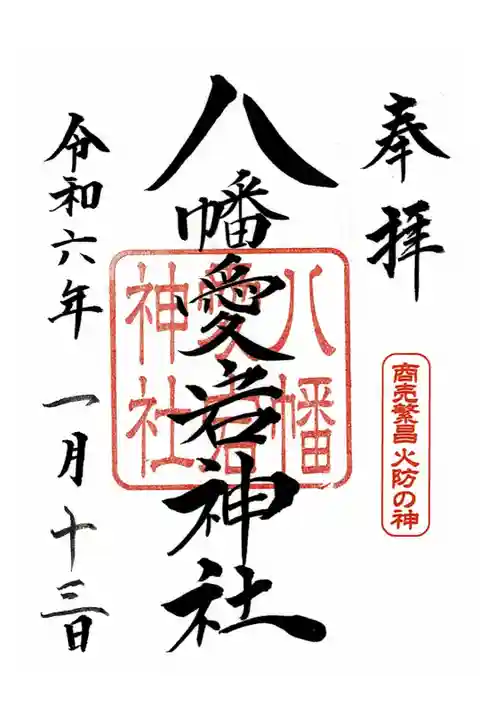 奉拝
商売繁昌 火防の神
八幡愛岩神社
八幡
愛岩
神社
令和六年 一月十三日